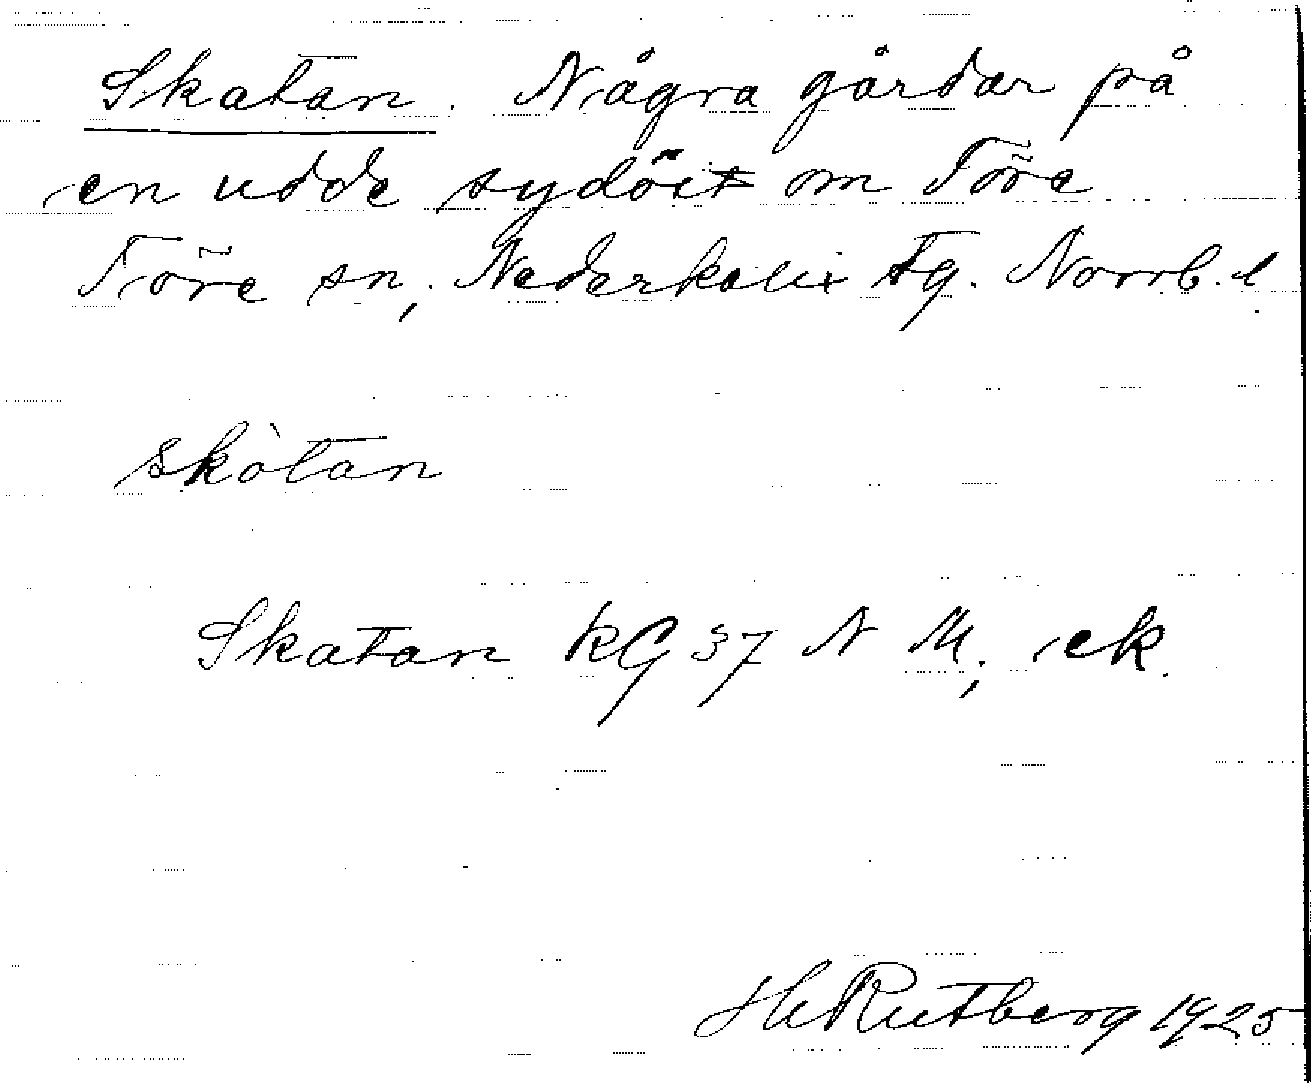 Skatan. Några gårdar på
en udde sydöst om Töre
Töre sn, Nederkalix tg. Norrb. l.
skòtan
Skatan KG 37 N M, ek.
H Rutberg 1925